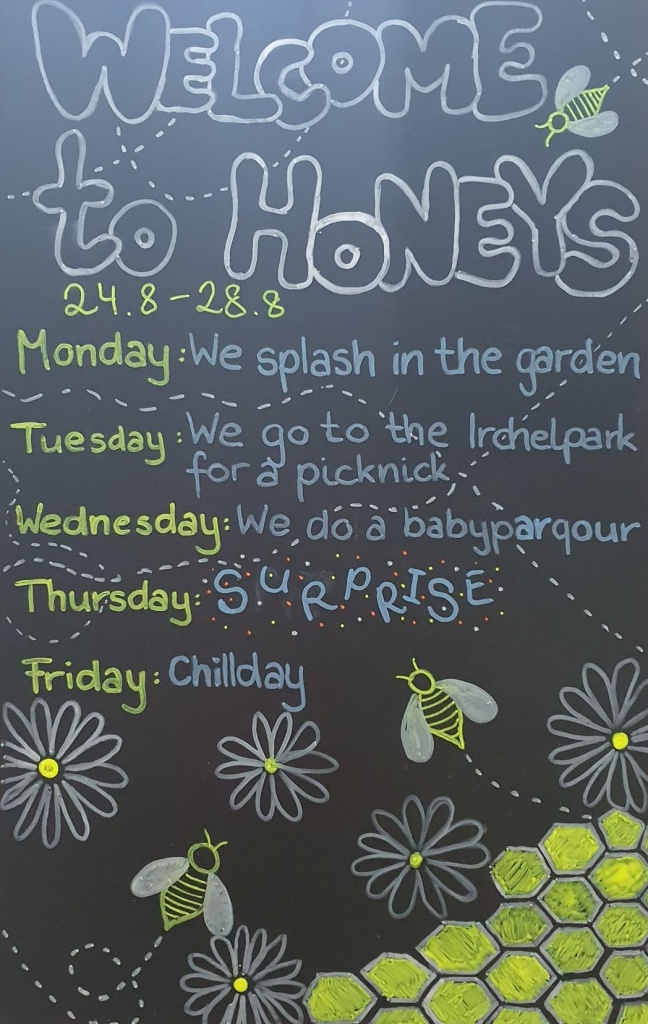 WELCOME
to HONEYS
24.8 - 28.8
Monday: We splash in the garden
Tuesday: We go to the Irchelpark
for a picknick
Wednesday: We do a babyparqour
Thursday: SURPRISE
Friday: Chillday